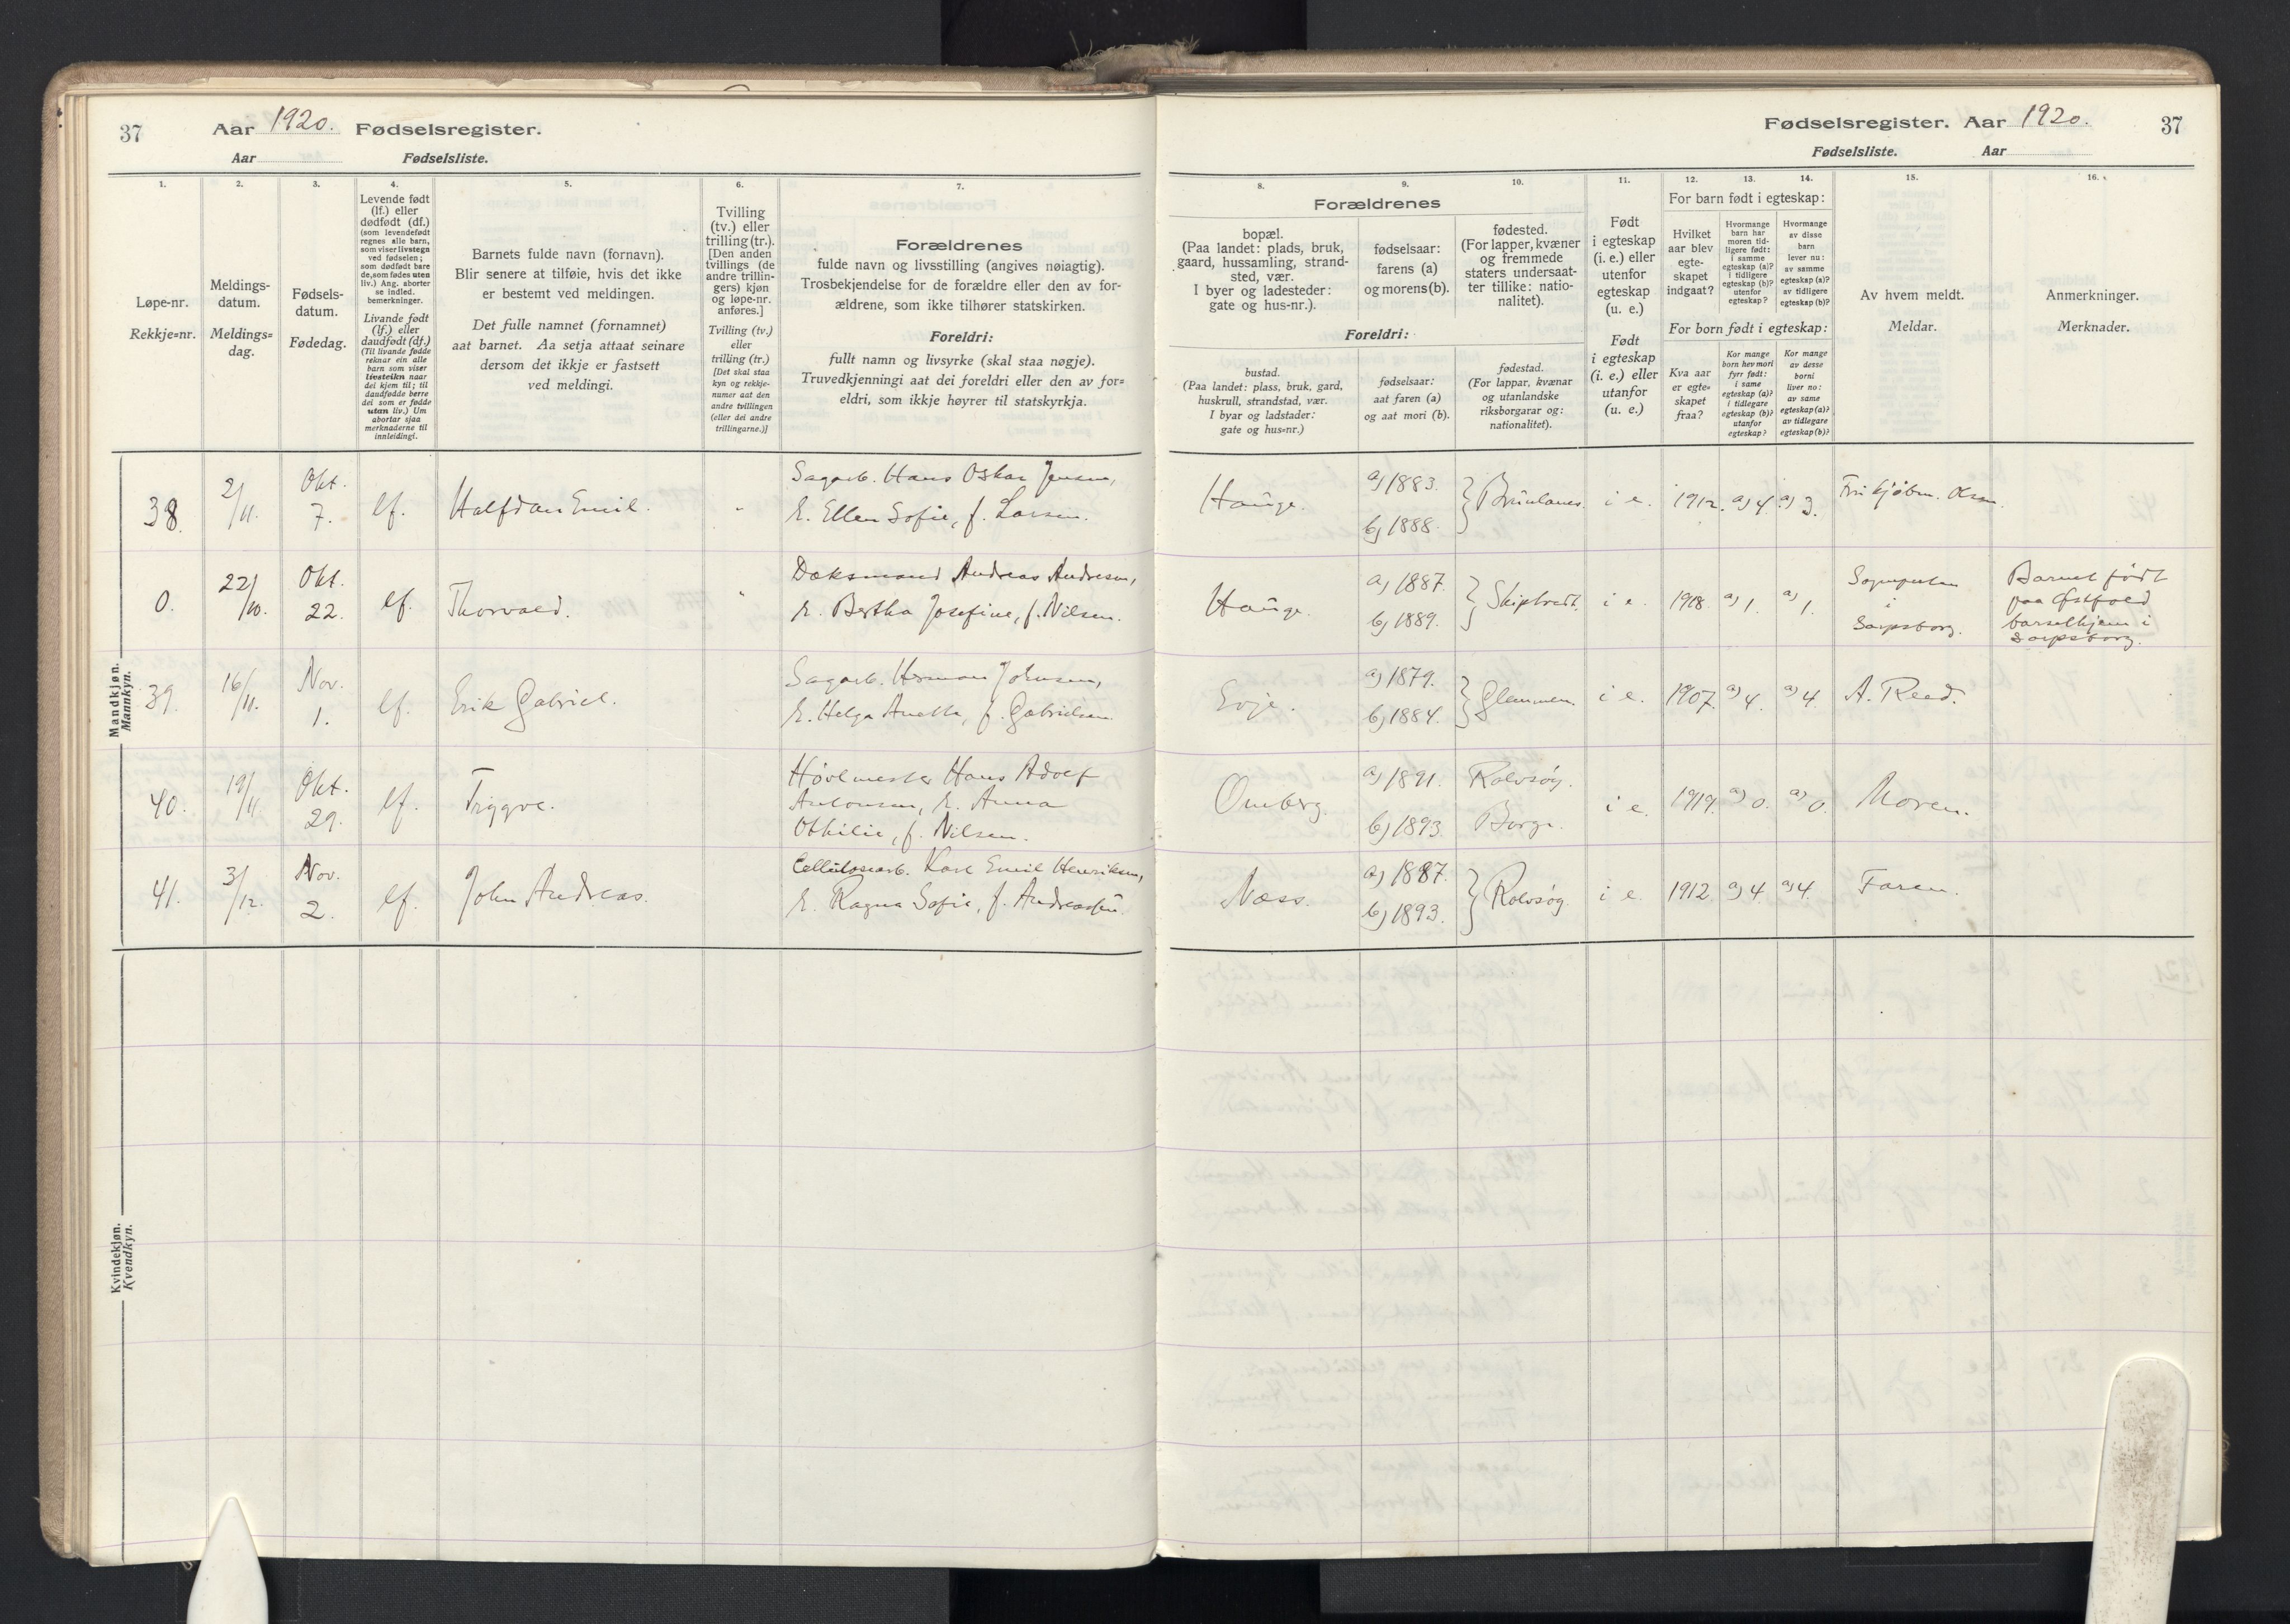 37
Aar 1920. Fødselsregister.
Aar Fødselsliste.
1.
2.
3.
4.
5.
6.
7.
Løpe-nr.
Rekkje=nr.
Meldings-
datum.
Meldings=
dag.
Fødsels-
datum.
Fødedag.
Levende født
(lf.) eller
dødfødt (df.)
(som levendefødt
regnes alle barn,
som viser livstegn
ved fødselen;
som dødfødt bare
de, som fødes uten
liv.) Ang. aborter
se indled.
bemerkninger.
Livande født
(lf.) eller
daudfødt (df.)
(Til livande fødde
reknar ein alle
barn som viser
livsteikn naar
dei kjem til; til
daudfødde berre
dei som er fødde
utan liv.) Um
abortar sjaa
merknaderne til
innleidingi.
Barnets fulde navn (fornavn).
Blir senere at tilføie, hvis det ikke
er bestemt ved meldingen.
Det fulle namnet (fornamnet)
aat barnet. Aa setja attaat seinare
dersom det ikkje er fastsett
ved meldingi.
Tvilling
(tv.) eller
trilling (tr.).
[Den anden
tvillings (de
andre trillin-
gers) kjøn
og løpe-nr.
anføres.]
Tvilling (tv.)
eller
trilling (tr.)
[Det skal staa
kyn og rekkje-
numer aat den
andre tvillingen
(eller dei andre
trillingarne.)]
Forældrenes
fulde navn og livsstilling (angives nøiagtig).
Trosbekjendelse for de forældre eller den av for-
ældrene, som ikke tilhører statskirken.
Foreldri:
fullt namn og livsyrke (skal staa nøgje).
Truvedkjenningi aat dei foreldri eller den av for=
eldri, som ikkje høyrer til statskyrkja.
Mandkjøn.
Mannkyn.
38. 2/11. Okt. 7. lf. Halfdan Emil.
Sagarb. Hans Oskar Jensen,
E. Ellen Sofie, f. Larsen.
0. 22/10. Okt. 22. lf. Thorvald.
Andreas Andresen,
E. Bertha Josefine, f. Nilsen.
39. 16/11. Nov. 1. lf. Erik Gabriel.
Sagarb. Herman Johnsen,
E. Helga Anetta, f. Gabrielsen.
40. 19/11. Okt. 29. lf. Tryggve.
Høvlmester Hans Adolf
Antonsen, E. Anna
Othilie, f. Nilsen.
41. 3/12. Nov. 2. lf. John Andreas.
Cellulosearb. Karl Emil Henriksen,
E. Ragna Sofie, f. Andreassen.
Kvindekjøn.
Kvendkyn.
Fødselsregister. Aar 1920. 37
Fødselsliste. Aar
8.
9.
10.
11.
12.
13.
14.
15.
16.
Forældrenes
bopæl.
(Paa landet: plads, bruk,
gaard, hussamling, strand-
sted, vær.
I byer og ladesteder:
gate og hus-nr.).
fødselsaar:
farens (a)
og morens (b).
fødested.
(For lapper, kvæner
og fremmede
staters undersaat-
ter tillike: natio-
nalitet).
Foreldri:
bustad.
(Paa landet: plass, bruk, gard,
huskrull, strandstad, vær.
I byar og ladstader:
gate og hus=nr.)
fødselsaar:
aat faren (a)
og aat mori (b).
fødestad.
(For lappar, kvænar
og utanlandske
riksborgarar og:
nationalitet).
Født
i egteskap
(i. e.) eller
utenfor
egteskap
(u. e.)
Født
i egteskap
(i. e.) eller
utanfor
(u. e.)
For barn født i egteskap:
Hvilket
aar blev
egte-
skapet
indgaat?
Hvormange
barn har
moren tid-
ligere født:
i samme
egteskap (a)?
i tidligere
egteskap (b)?
utenfor
egteskap?
Hvormange
av disse
barn
lever nu:
av samme
egteskap (a)?
av tidligere
egteskap (b)?
For born født i egteskap:
Kva aar
er egte=
skapet
fraa?
Kor mange
born hev mori
fyrr født:
i same
egteskap (a)?
i tidlegare
egteskap (b)?
utanfor
egteskap?
Kor mange
av desse
borni
liver no:
av same
egteskap (a)?
av tidlegare
egteskap (b)?
Av hvem meldt.
Meldar.
Anmerkninger.
Merknader.
Hauge. a) 1883. b) 1888. Brunlanes. i e. 1912. a) 4. a) 3.
Hauge. a) 1887. b) 1889. Skiptvedt. i e. 1918. a) 1. a) 1.
Sognepresten
i
Sarpsborg.
Barnet født
paa Østfold
barselhjem i
Sarpsborg.
Evje. a) 1879. b) 1884. Glemmen. i e. 1907. a) 4. a) 4. A. Reed.
Omberg. a) 1891. Rolvsøy.
b) 1893. Borge. i e. 1919. a) 0. a) 0. Moren.
Næss. a) 1887. b) 1893. Rolvsøy. i e. 1912. a) 4. a) 4. Faren.